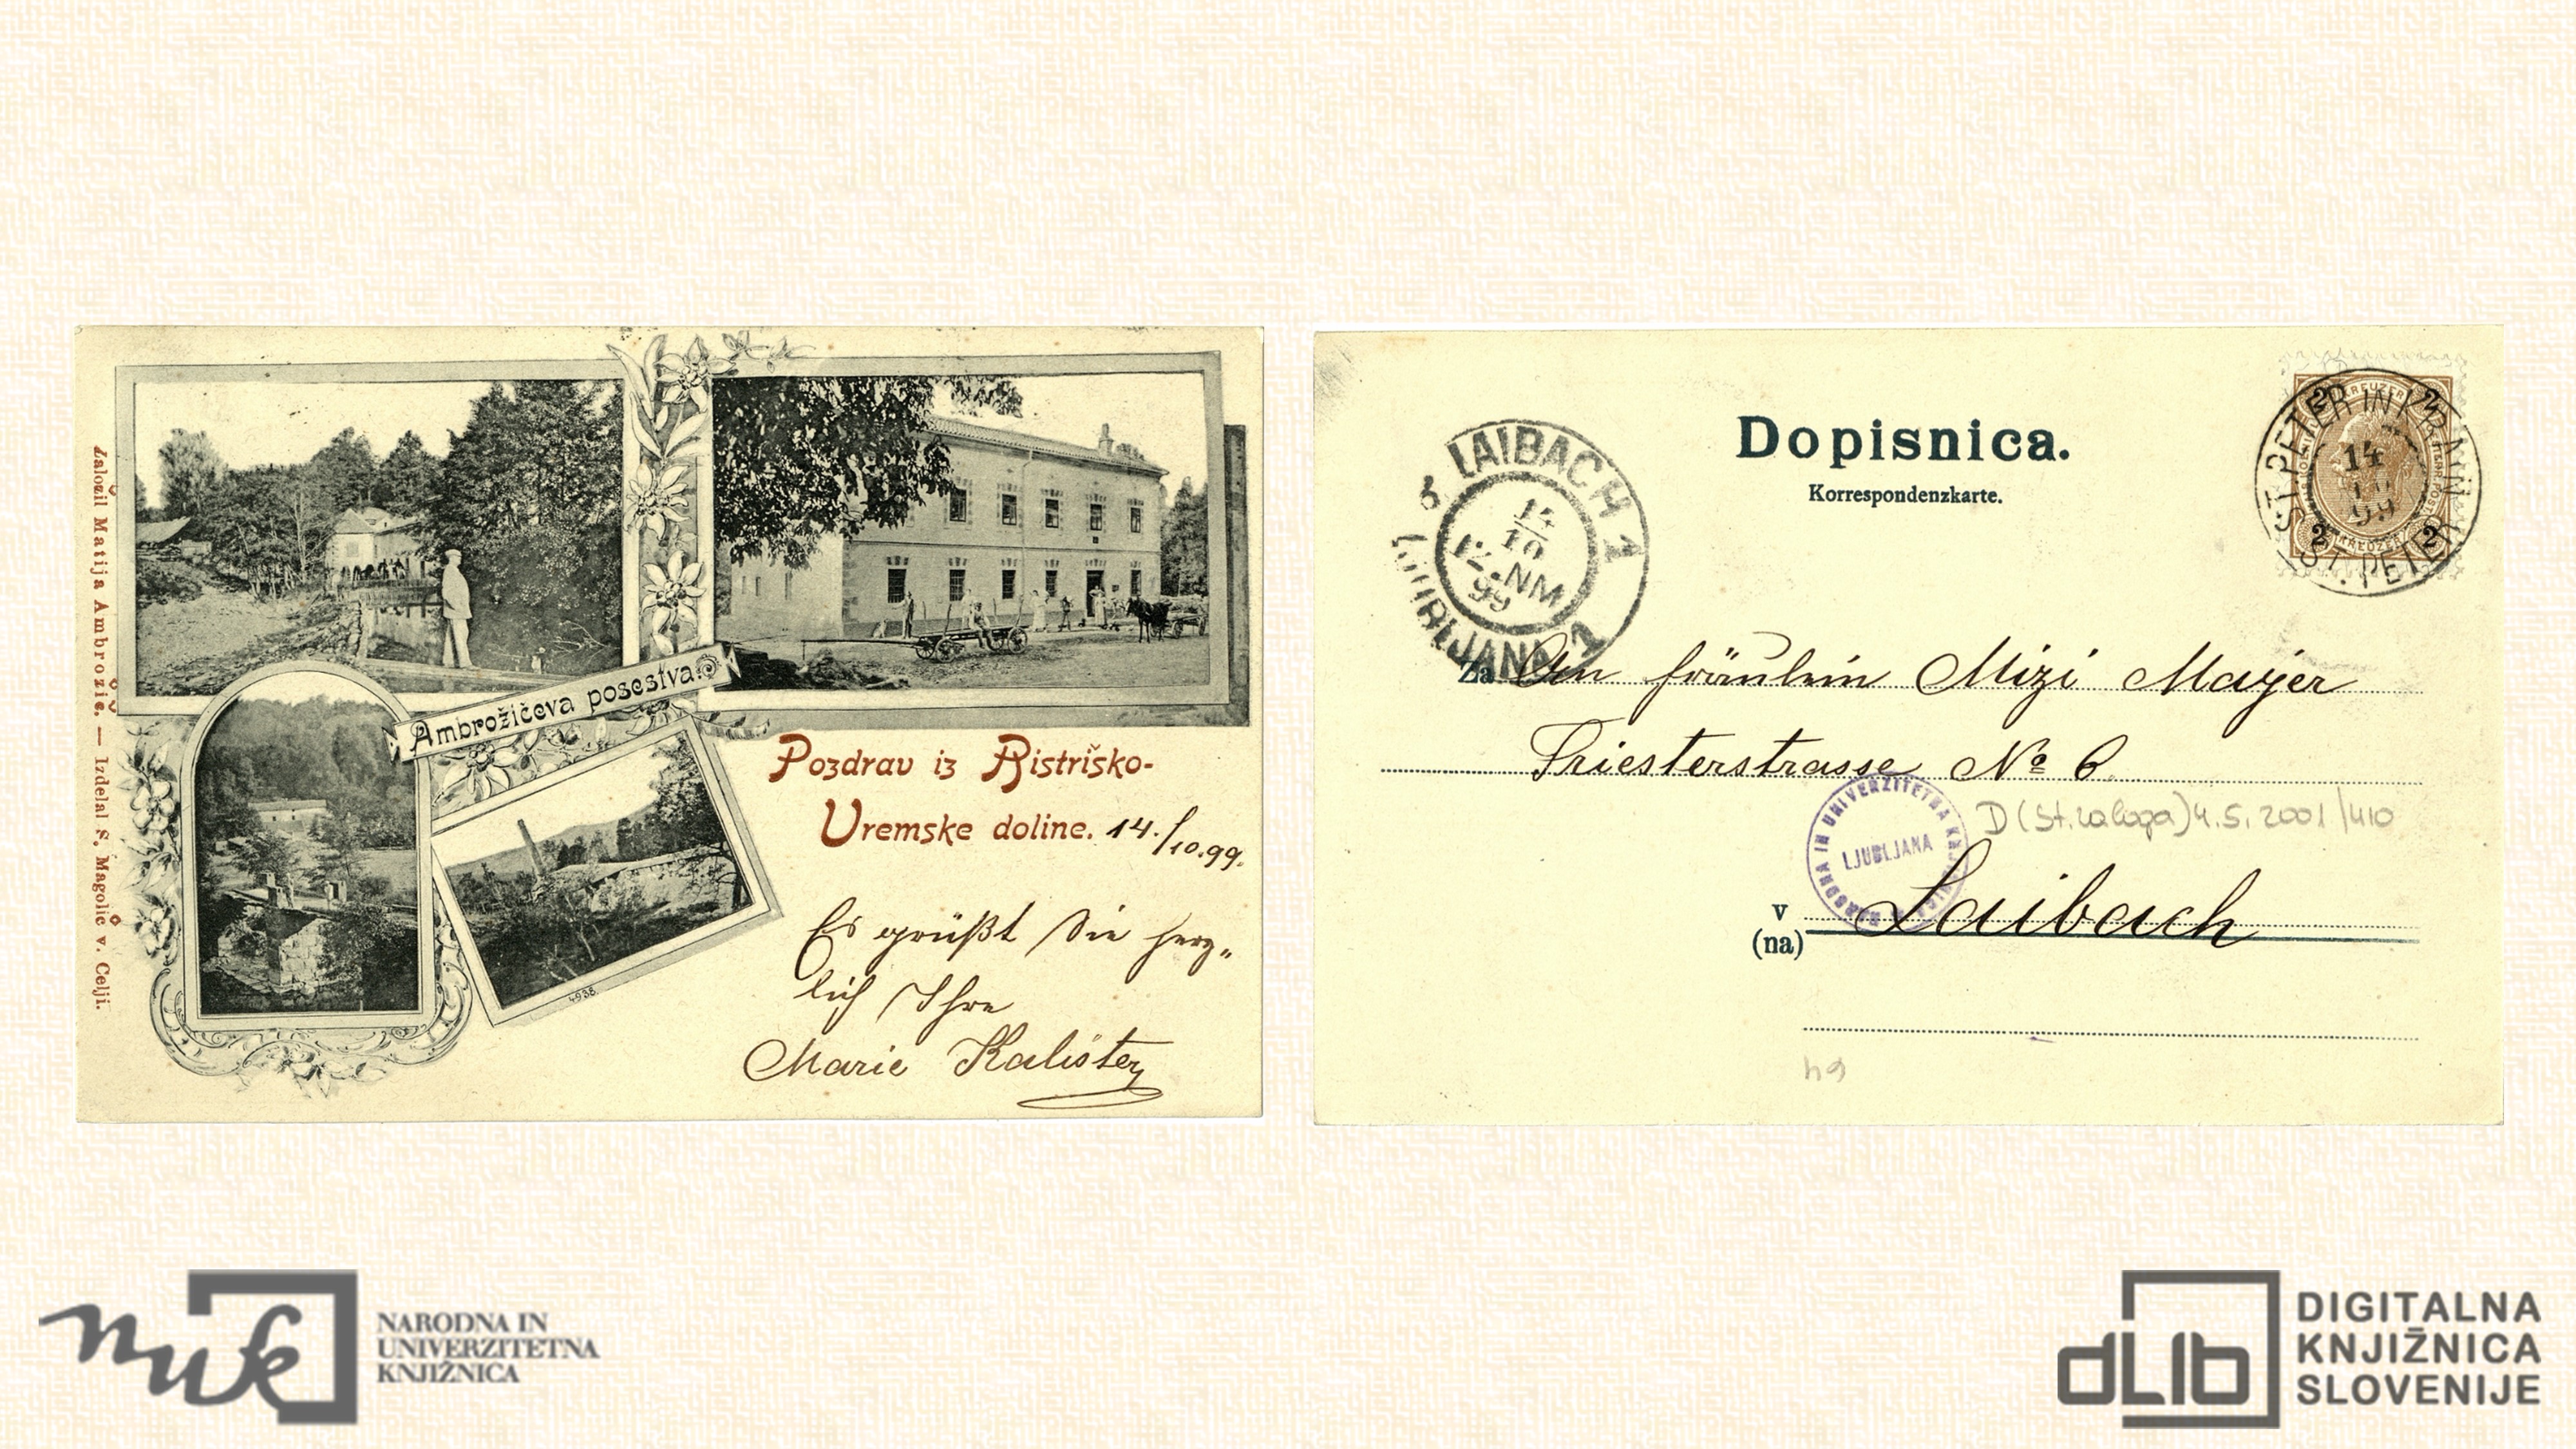 Založil Matija Ambrožič. — Izdelal S. Magolič v. Celji.
Ambrožičeva posestva.
4938.
Pozdrav iz Bistriško-
Vremske doline. 14./10.99.
Es grüßt Sie herz„
lich Ihre
Marie Kalister
Dopisnica.
Korrespondenzkarte.
LAIBACH 1
LJUBLJANA 1
14
10
NM
99
2 KREUZER 2
ST. PETER IN KRAIN
14
10
99
ST. PETER
Za An fräulein Mizi Mayer
Triesterstrasse No 6
NARODNA IN UNIVERZITETNA KNJIŽNICA
LJUBLJANA
D (St. zaloga) 4. 5. 2001/410
v
(na) Laibach
49
nuk
NARODNA IN
UNIVERZITETNA
KNJIŽNICA
dLib
DIGITALNA
KNJIŽNICA
SLOVENIJE